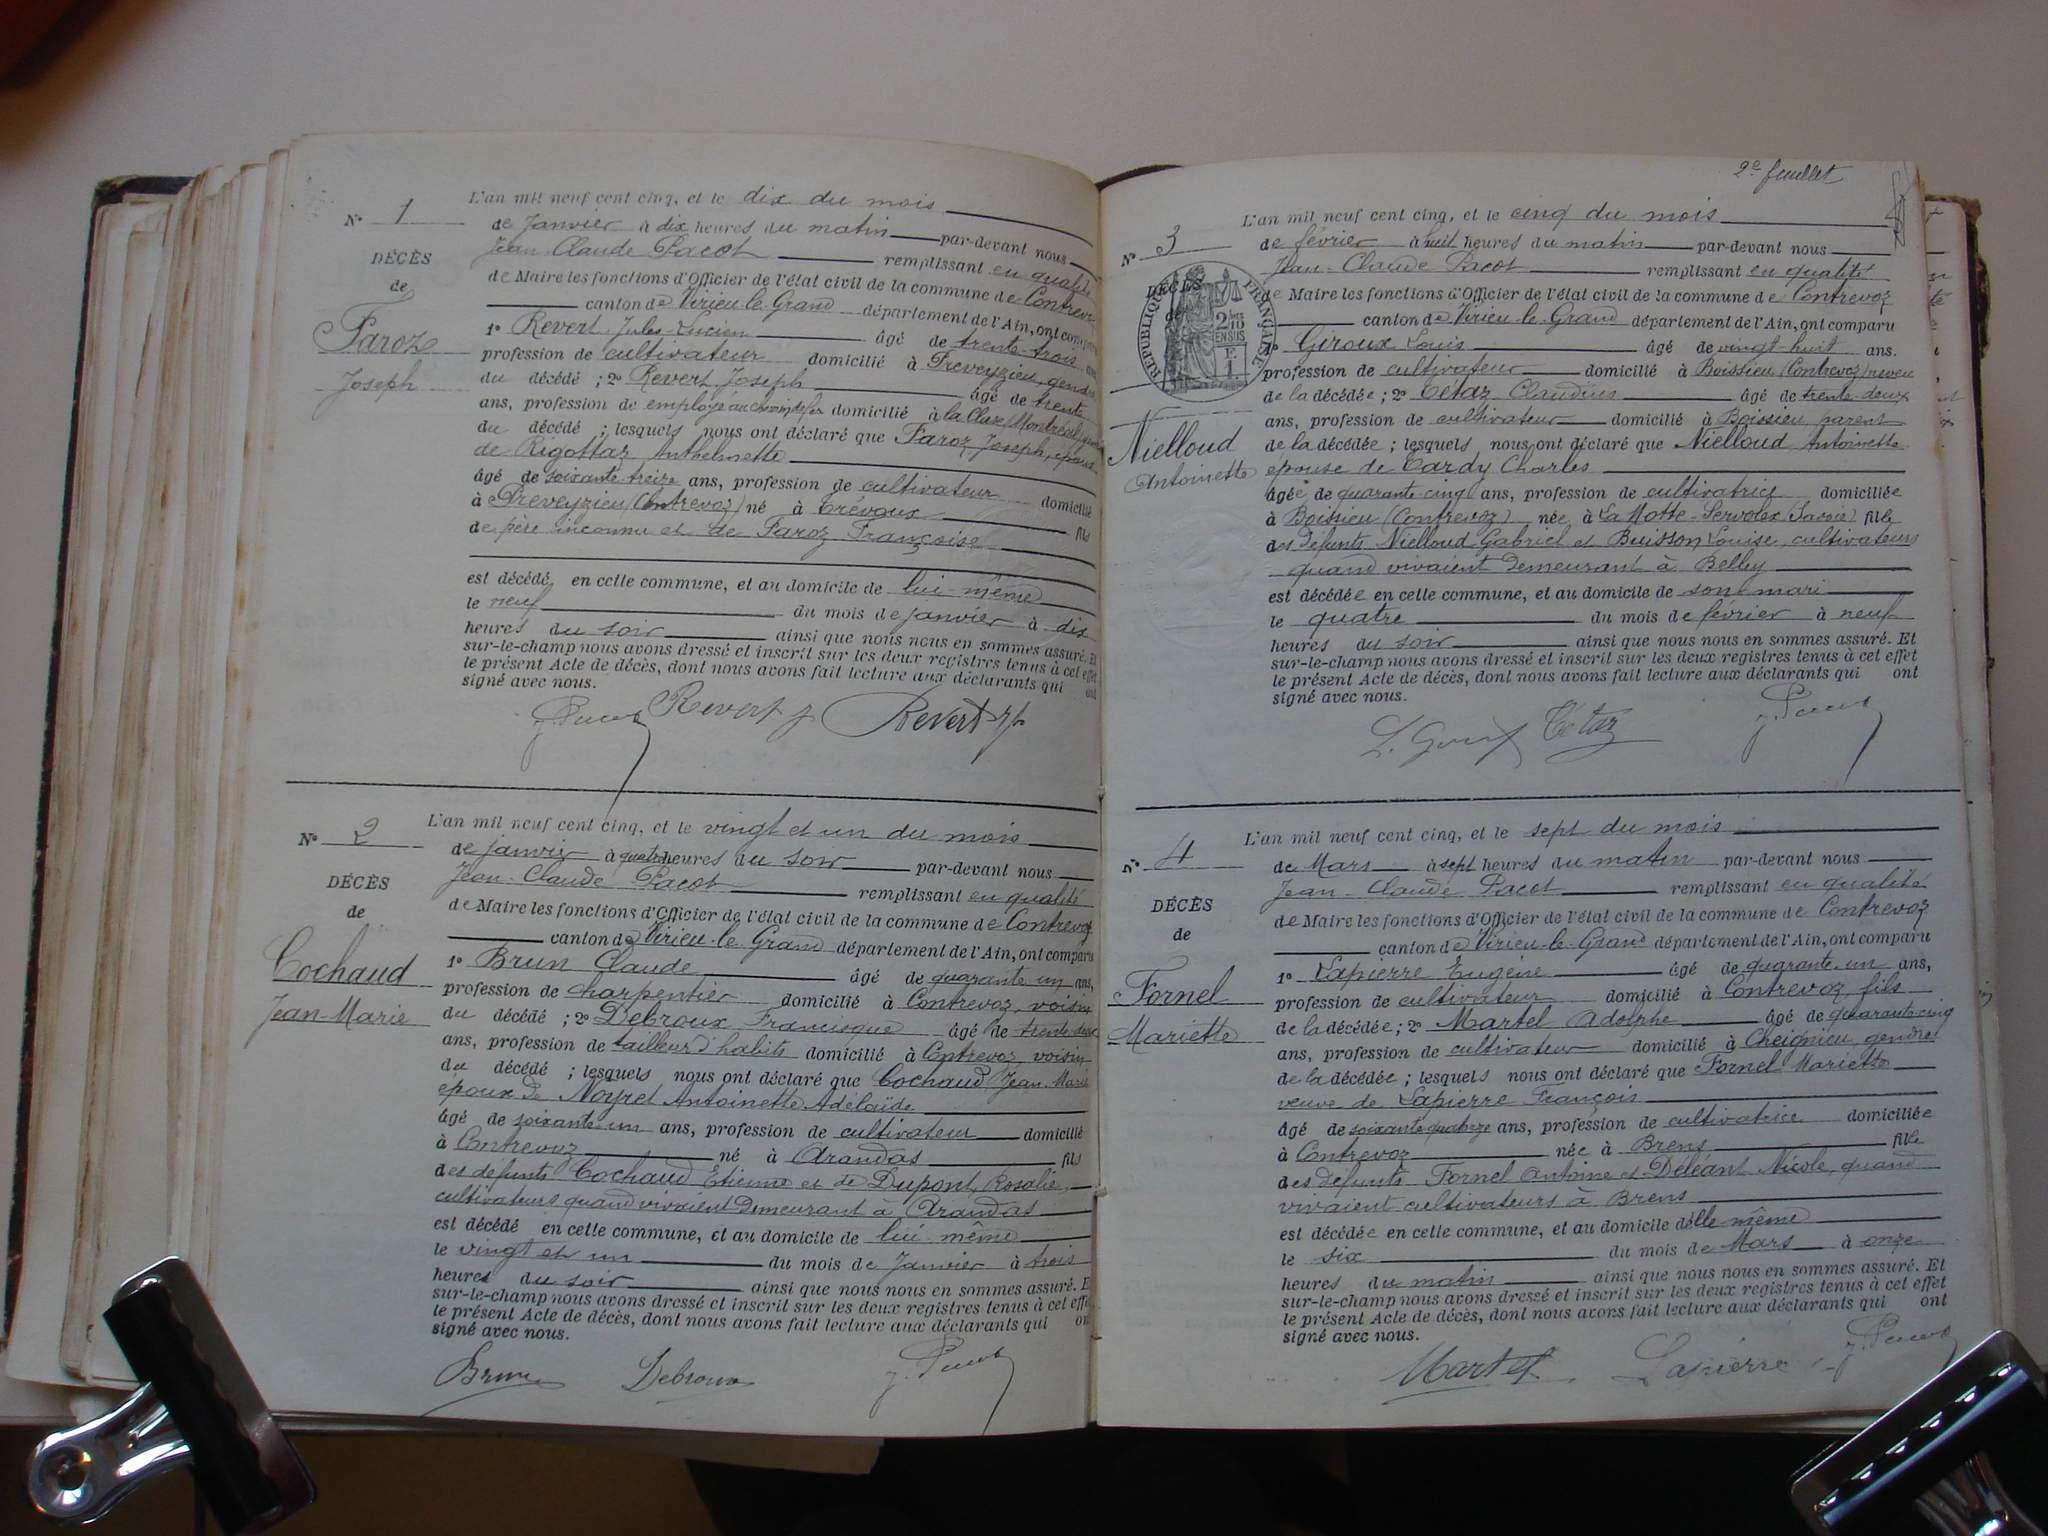 N° 1
DÉCÈS
de
Faroz
Joseph
L'an mil neuf cent cinq, et le dix du mois
de Janvier à dix heures du matin par-devant nous
Jean-Claude Pacot remplissant en qualité
de Maire les fonctions d'Officier de l'état civil de la commune de Contrevoz
canton de Virieu-le-Grand département de l'Ain, ont comparu
1° Revert Jules-Lucien âgé de trente-trois ans,
profession de cultivateur domicilié à Preveyzieu, gendre
du décédé ; 2° Revert Joseph âgé de trente
ans, profession de employé au chemin de fer domicilié à la Cluse (Montréal)
du décédé ; lesquels nous ont déclaré que Faroz Joseph, époux
de Rigottaz Anthelmette
âgé de soixante-treize ans, profession de cultivateur domicilié
à Preveyzieu (Contrevoz) né à Trévoux fils
de père inconnu et de Faroz Françoise
est décédé en cette commune, et au domicile de lui-même
le neuf du mois de janvier à dix
heures du soir ainsi que nous nous en sommes assuré. Et
sur-le-champ nous avons dressé et inscrit sur les deux registres tenus à cet effet
le présent Acte de décès, dont nous avons fait lecture aux déclarants qui ont
signé avec nous.
J. Pacot Revert J Revert J L
N° 2
DÉCÈS
de
Cochaud
Jean-Marie
L'an mil neuf cent cinq, et le vingt et un du mois
de Janvier à quatre heures du soir par-devant nous
Jean-Claude Pacot remplissant en qualité
de Maire les fonctions d'Officier de l'état civil de la commune de Contrevoz
canton de Virieu-le-Grand département de l'Ain, ont comparu
1° Brun Claude âgé de quarante-un ans,
profession de charpentier domicilié à Contrevoz, voisin
du décédé ; 2° Debroux Francisque âgé de trente-deux
ans, profession de tailleur d'habits domicilié à Contrevoz voisin
du décédé ; lesquels nous ont déclaré que Cochaud Jean-Marie
époux de Noyret Antoinette Adélaïde
âgé de soixante-un ans, profession de cultivateur domicilié
à Contrevoz né à Arandas fils
des défunts Cochaud Etienne et de Dupont Rosalie,
cultivateurs quand vivaient demeurant à Arandas
est décédé en cette commune, et au domicile de lui-même
le vingt et un du mois de Janvier à trois
heures du soir ainsi que nous nous en sommes assuré. Et
sur-le-champ nous avons dressé et inscrit sur les deux registres tenus à cet effet
le présent Acte de décès, dont nous avons fait lecture aux déclarants qui ont
signé avec nous.
Brun Debroux J. Pacot
2e feuillet
N° 3
DÉCÈS
de
RÉPUBLIQUE FRANÇAISE
2/10
EN SUS
Nielloud
Antoinette
L'an mil neuf cent cinq, et le cinq du mois
de février à huit heures du matin par-devant nous
Jean-Claude Pacot remplissant en qualité
de Maire les fonctions d'Officier de l'état civil de la commune de Contrevoz
canton de Virieu-le-Grand département de l'Ain, ont comparu
1° Giroux Louis âgé de vingt-huit ans.
profession de cultivateur domicilié à Boissieu (Contrevoz) neveu
de la décédée ; 2° Tétaz Claudius âgé de trente-deux
ans, profession de cultivateur domicilié à Boissieu parent
de la décédée ; lesquels nous ont déclaré que Nielloud Antoinette
épouse de Tardy Charles
âgée de quarante-cinq ans, profession de cultivatrice domiciliée
à Boissieu (Contrevoz) née à La Motte-Servolex (Savoie) fille
des défunts Nielloud Gabriel et Buisson Louise, cultivateurs
quand vivaient demeurant à Belley
est décédée en cette commune, et au domicile de son mari
le quatre du mois de février à neuf
heures du soir ainsi que nous nous en sommes assuré. Et
sur-le-champ nous avons dressé et inscrit sur les deux registres tenus à cet effet
le présent Acte de décès, dont nous avons fait lecture aux déclarants qui ont
signé avec nous.
L. Giroux Tétaz J. Pacot
N° 4
DÉCÈS
de
Fornel
Mariette
L'an mil neuf cent cinq, et le sept du mois
de Mars à sept heures du matin par-devant nous
Jean-Claude Pacot remplissant en qualité
de Maire les fonctions d'Officier de l'état civil de la commune de Contrevoz
canton de Virieu-le-Grand département de l'Ain, ont comparu
1° Lapierre Eugène âgé de quarante-un ans,
profession de cultivateur domicilié à Contrevoz, fils
de la décédée ; 2° Martel Adolphe âgé de quarante-cinq
ans, profession de cultivateur domicilié à Cheignieu, gendre
de la décédée ; lesquels nous ont déclaré que Fornel Mariette
veuve de Lapierre François
âgé de soixante-quatorze ans, profession de cultivatrice domiciliée
à Contrevoz née à Brens fille
des défunts Fornel Antoine et Déléant Nicole, quand
vivaient cultivateurs à Brens
est décédée en cette commune, et au domicile d'elle-même
le six du mois de Mars à onze
heures du matin ainsi que nous nous en sommes assuré. Et
sur-le-champ nous avons dressé et inscrit sur les deux registres tenus à cet effet
le présent Acte de décès, dont nous avons fait lecture aux déclarants qui ont
signé avec nous.
Martel Lapierre J. Pacot